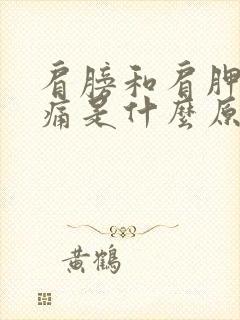 肩膀和肩胛
痛是什麼原
黄鹤